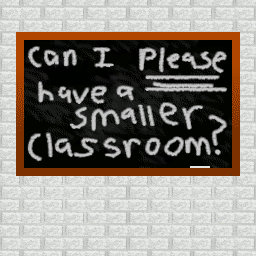 Can I Please
have a
smaller
Classroom?